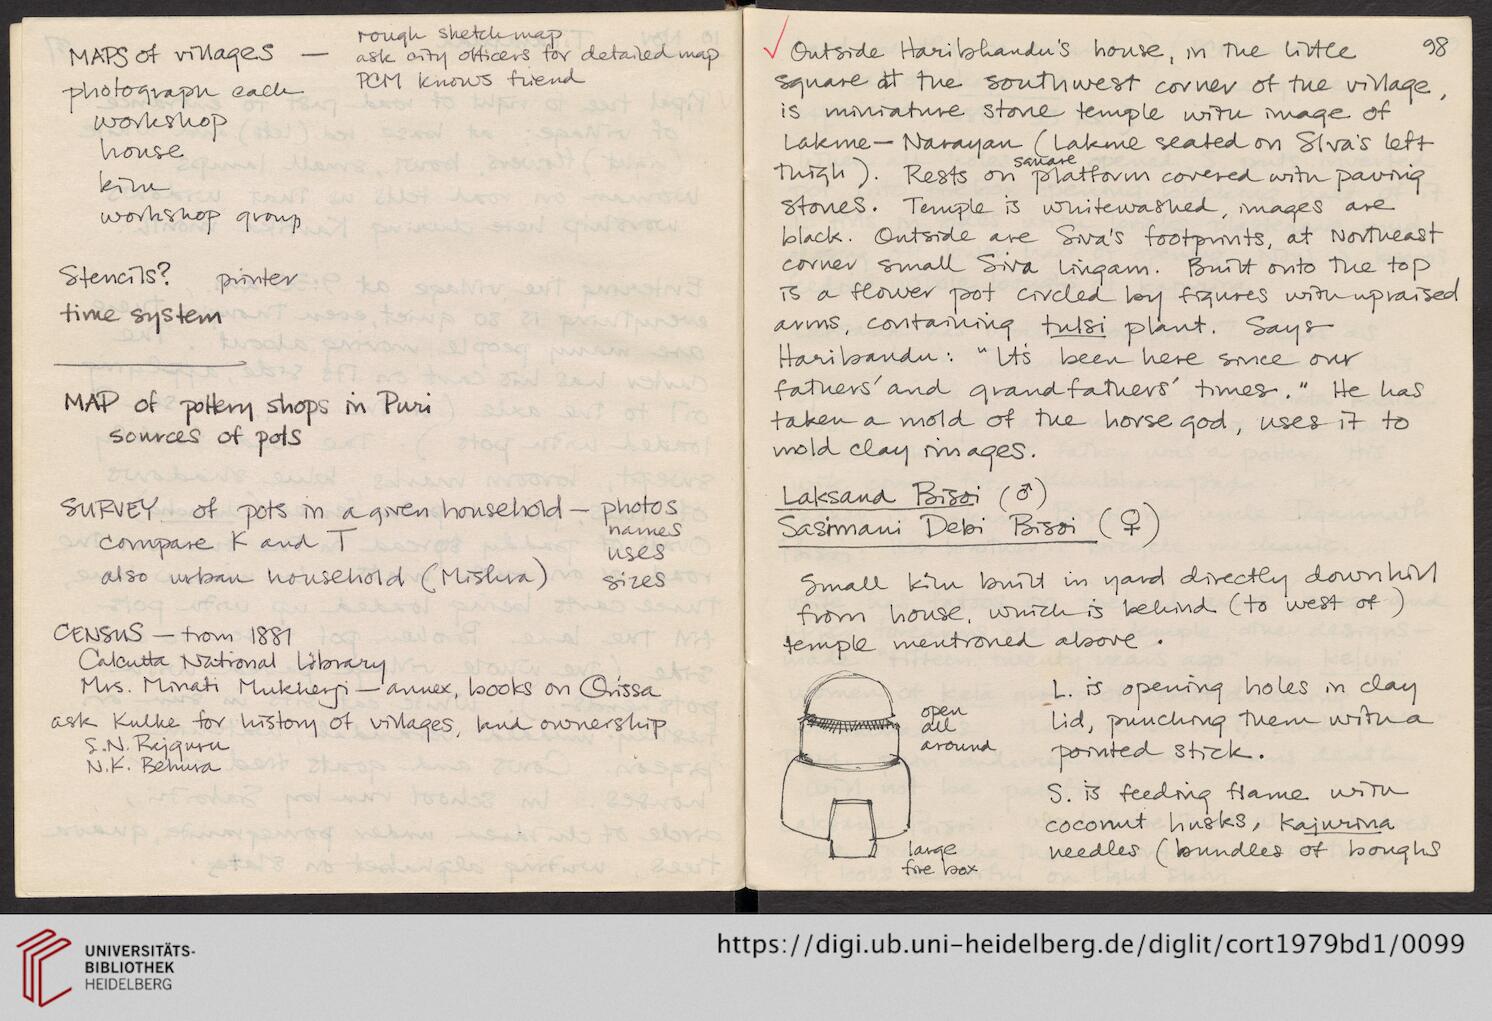 MAPS of villages — rough sketch map
ask city officers for detailed map
PCM knows friend
photograph each
workshop
house
kiln
workshop group
Stencils? printer
time system
MAP of pottery shops in Puri
sources of pots
SURVEY of pots in a given household — photos
names
compare K and T uses
also urban household (Mishra) sizes
CENSUS — from 1881
Calcutta National Library
Mrs. Minati Mukherji — annex, books on Orissa
ask Kulke for history of villages, land ownership
S.N. Rajguru
N.K. Behura
98
✓ Outside Haribhandu's house, in the little
square at the southwest corner of the village,
is miniature stone temple with image of
Lakme — Narayan (Lakme seated on Siva's left
thigh). Rests on square platform covered with paving
stones. Temple is whitewashed, images are
black. Outside are Siva's footprints, at Northeast
corner small Siva lingam. Built onto the top
is a flower pot circled by figures with upraised
arms, containing tulsi plant. Says
Haribandu: "It's been here since our
fathers' and grandfathers' times." He has
taken a mold of the horse god, uses it to
mold clay images.
Laksana Bisoi (♂)
Sasimani Debi Bisoi (♀)
Small kiln built in yard directly downhill
from house, which is behind (to west of)
temple mentioned above.
open
all
around
large
fire box
L. is opening holes in clay
lid, punching them with a
pointed stick.
S. is feeding flame with
coconut husks, kajurina
needles (bundles of boughs
UNIVERSITÄTS-
BIBLIOTHEK
HEIDELBERG
https://digi.ub.uni-heidelberg.de/diglit/cort1979bd1/0099